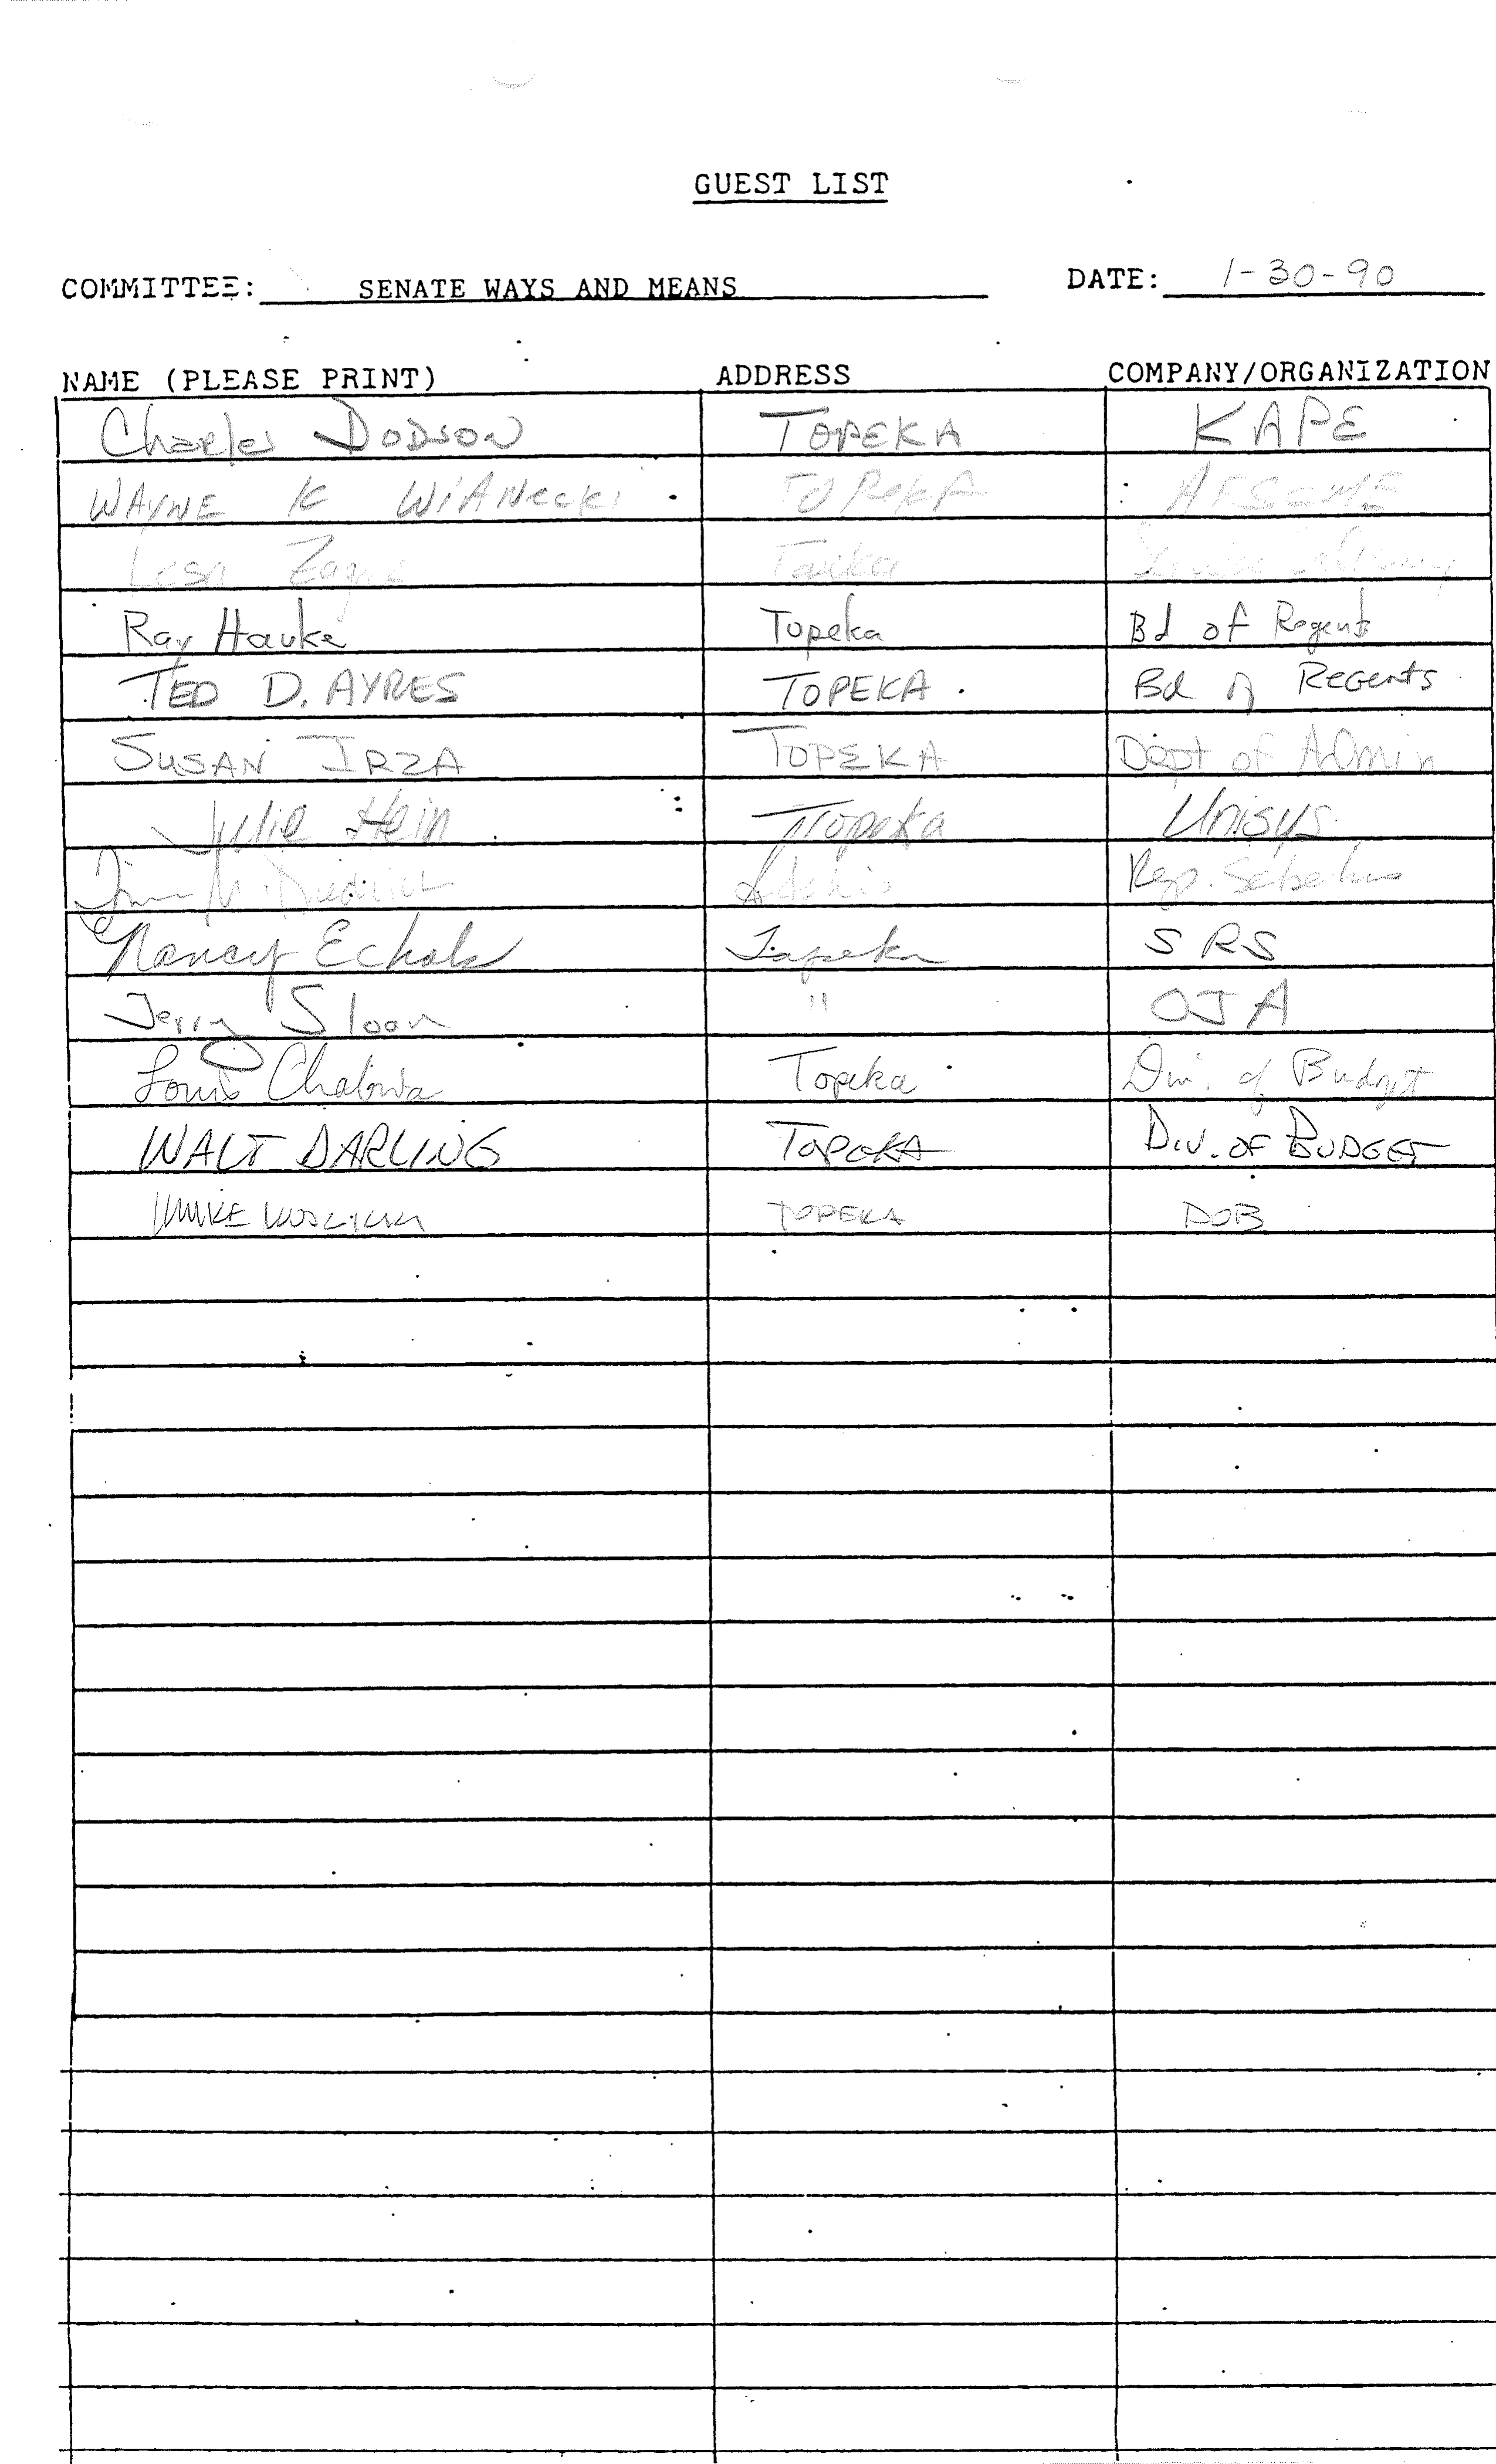 GUEST LIST
COMMITTEE: SENATE WAYS AND MEANS DATE: 1-30-90
NAME (PLEASE PRINT) ADDRESS COMPANY/ORGANIZATION
Charles Dodson TOPEKA KAPE
WAYNE K WIANecki TOPekA AFSCME
Topeka
Ray Hauke Topeka Bd of Regents
TED D. AYRES TOPEKA. Bd of Regents
SUSAN IRZA TOPEKA Dept of Admin
Julie Hein Topeka Unisys
Rep. Sebelius
Nancy Echols Topeka SRS
Jerry Sloan " OJA
Louis Chabira Topeka Div. of Budget
WALT DARLING TOPEKA DIV. OF BUDGET
MIKE TOPEKA DOB